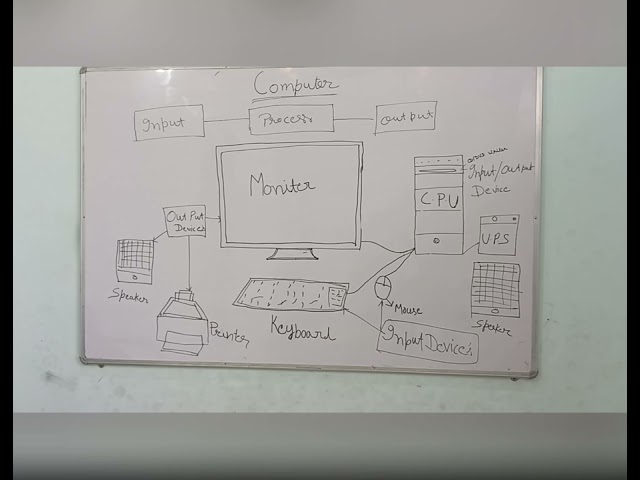 Computer
Input
Process
Output
Moniter
Input/Output
Device
CPU
OutPut
Devices
UPS
Speaker
Printer
Keyboard
Mouse
Input Devices
Speaker